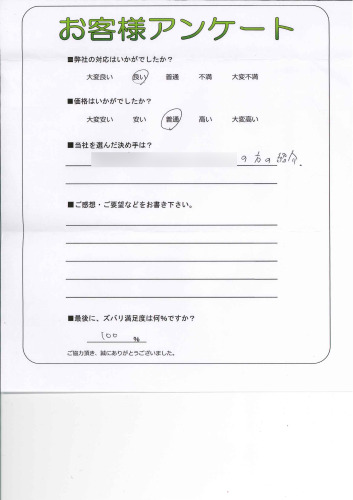 お客様アンケート
■弊社の対応はいかがでしたか？
大変良い 良い 普通 不満 大変不満
■価格はいかがでしたか？
大変安い 安い 普通 高い 大変高い
■当社を選んだ決め手は？
の方の紹介.
■ご感想・ご要望などをお書き下さい。
■最後に、ズバリ満足度は何％ですか？
100 %
ご協力頂き、誠にありがとうございました。